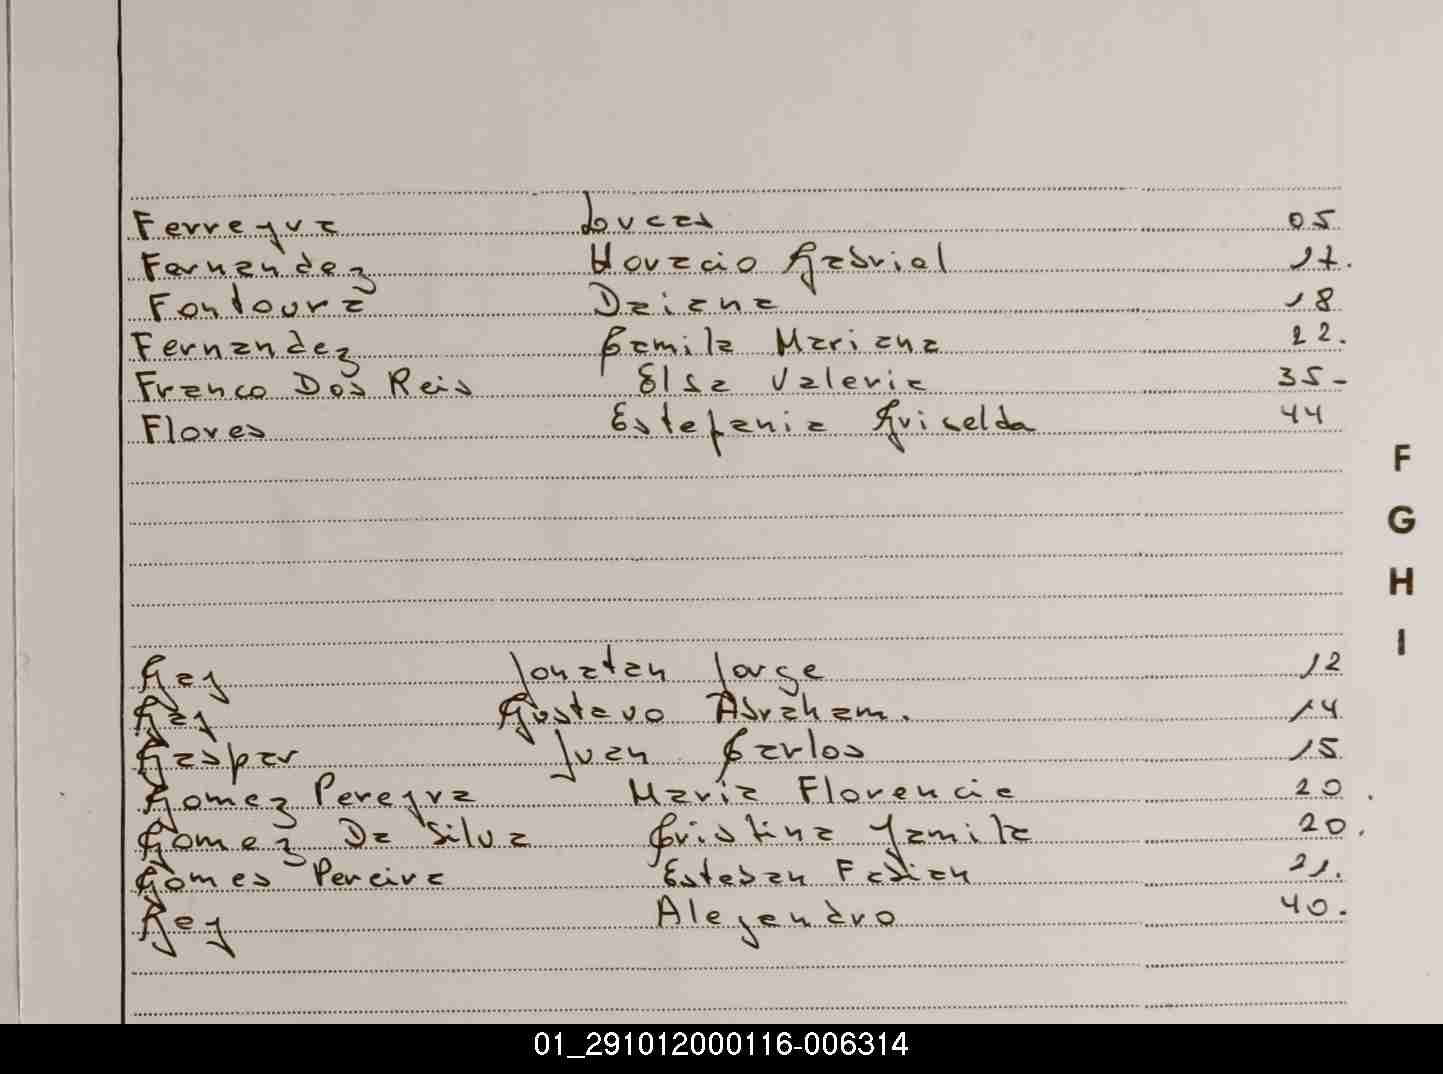 Ferreyra Lucas 05
Fernandez Horacio Gabriel 17.
Fontoura Daiana 18
Fernandez Camila Mariana 22.
Franco Dos Reis Elsa Valeria 35-
Flores Estefania Griselda 44
F
G
H
I
Gay Jonatan Jorge 12
Gay Gustavo Abraham. 14
Gaspar Juan Carlos 15
Gomez Pereyra Maria Florencia 20.
Gomez Da Silva Cristina Yamila 20.
Gomes Pereira Esteban Fabian 21.
Gey Aleyandro 40.
01_291012000116-006314